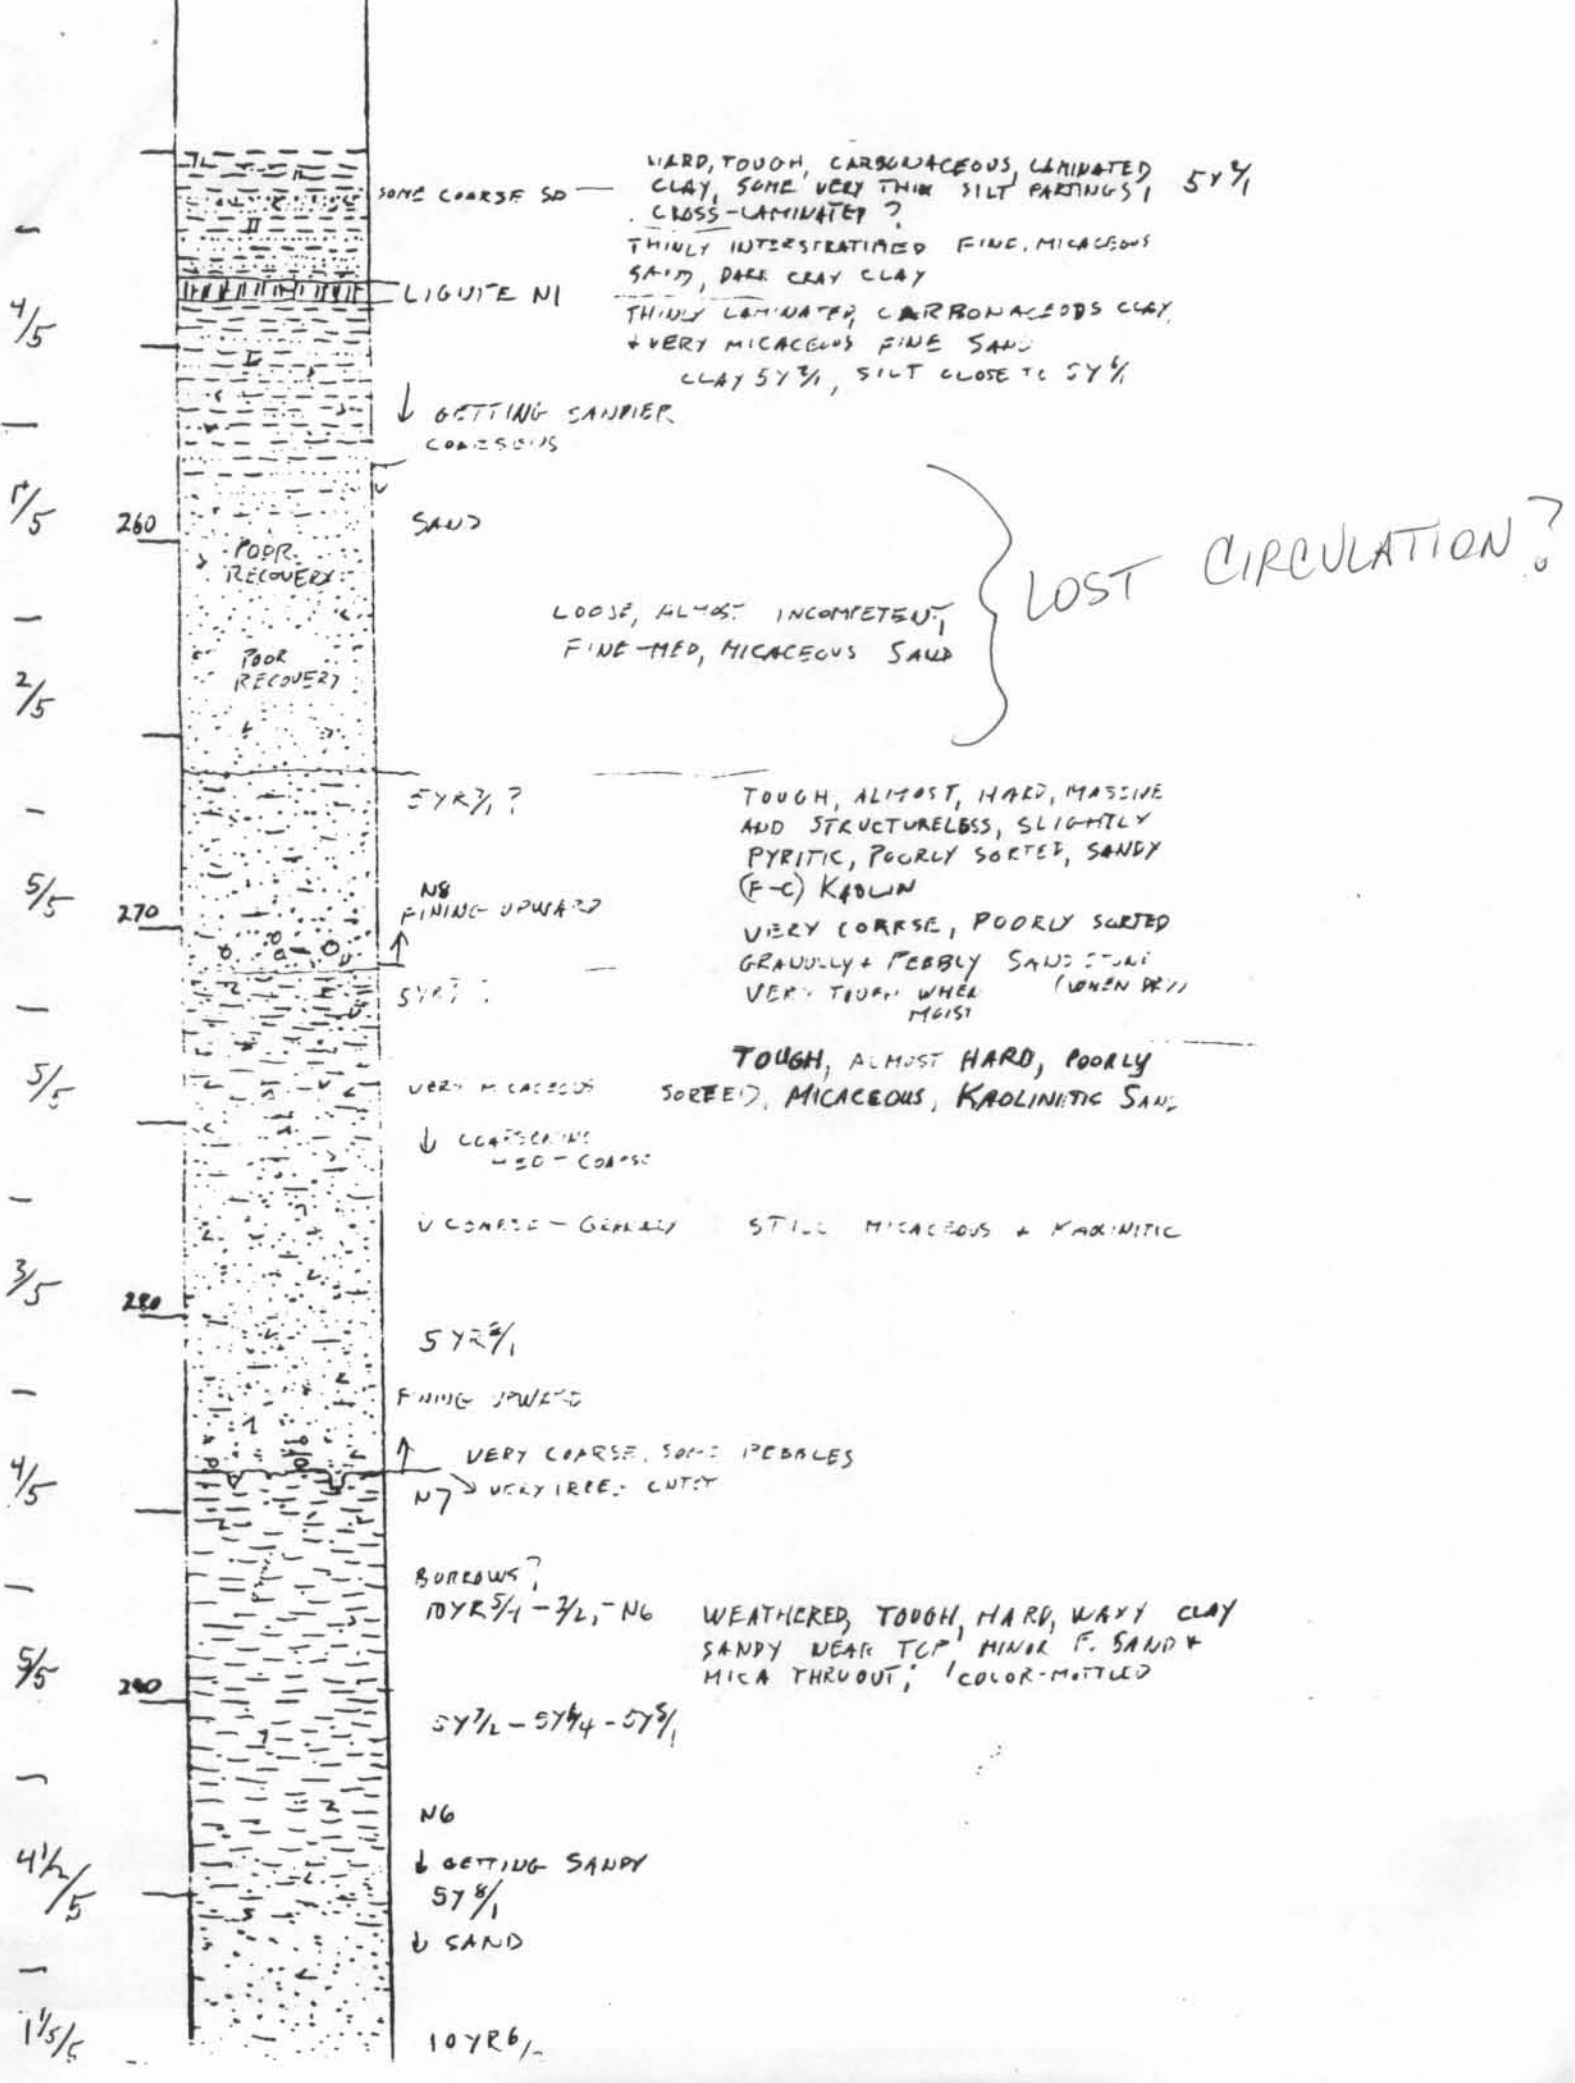 SOME COARSE SD
HARD, TOUGH, CARBONACEOUS, LAMINATED
CLAY, SOME VERY THIN SILT PARTINGS, 5Y 2/1
CROSS-LAMINATED ?
THINLY INTERSTRATIFIED FINE, MICACEOUS
SAND, DARK GRAY CLAY
LIGNITE N1
THINLY LAMINATED, CARBONACEOUS CLAY
+ VERY MICACEOUS FINE SAND
CLAY 5Y 2/1, SILT CLOSE TO 5Y 6/1
4/5
↓ GETTING SANDIER
COARSENS
/5
260
SAND
POOR
RECOVERY
LOST CIRCULATION?
LOOSE, ALMOST INCOMPETENT,
FINE-MED, MICACEOUS SAND
POOR
RECOVERY
2/5
5YR 7/1 ?
TOUGH, ALMOST, HARD, MASSIVE
AND STRUCTURELESS, SLIGHTLY
PYRITIC, POORLY SORTED, SANDY
(F-C) KAOLIN
5/5
270
N8
FINING UPWARD
VERY COARSE, POORLY SORTED
GRANULLY + PEBBLY SANDSTONE
VERY TOUGH WHEN (WHEN DRY)
MOIST
5YR
TOUGH, ALMOST HARD, POORLY
SORTED, MICACEOUS, KAOLINITIC SAND
5/5
VERY MICACEOUS
↓ COARSENING
MED-COARSE
V COARSE - GRANULY STILL MICACEOUS + KAOLINITIC
3/5
280
5YR 8/1
FINING UPWARD
↑ VERY COARSE, SOME PEBBLES
4/5
N7 VERY IRREG CNTCT
BURROWS?
10YR 5/1 - 7/2, - N6
WEATHERED, TOUGH, HARD, WAXY CLAY
SANDY NEAR TOP, MINOR F. SAND +
MICA THRUOUT; COLOR-MOTTLED
5/5
290
5Y 7/2 - 5Y 6/4 - 5Y 8/1
N6
↓ GETTING SANDY
4 1/2/5
5Y 8/1
↓ SAND
1 1/5/5
10YR 6/